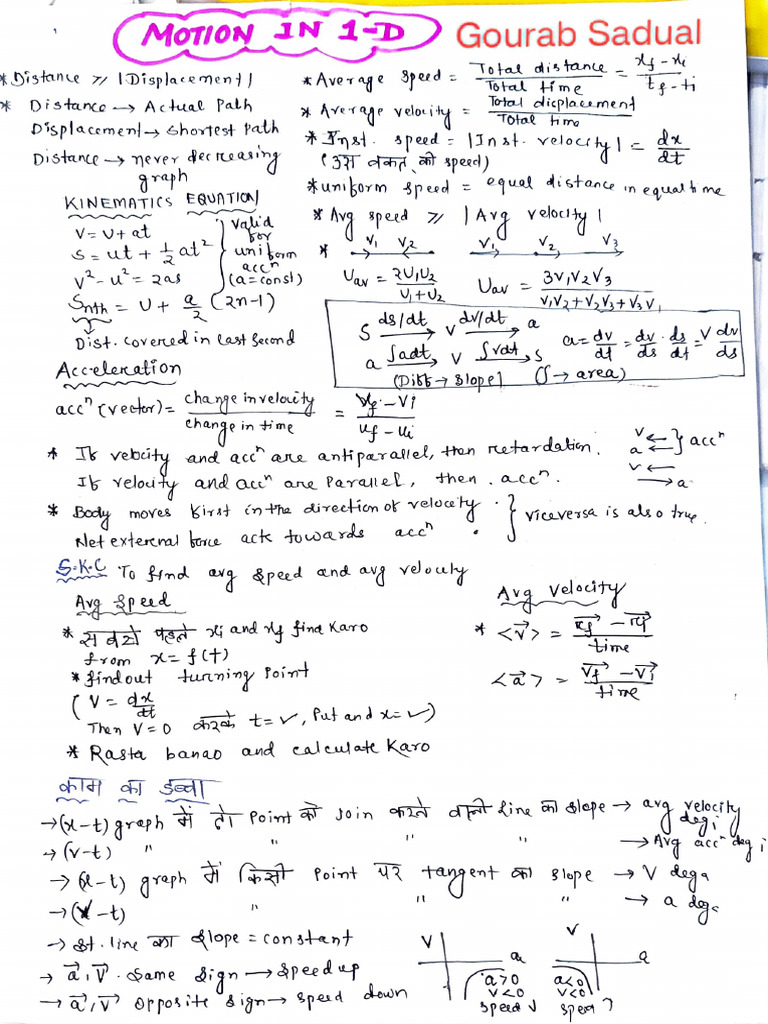 MOTION IN 1-D
Gourab Sadual
* Distance ≥ |Displacement|
* Distance → Actual Path
Displacement → Shortest Path
Distance → never decreasing
graph
KINEMATICS EQUATION
V = U + at
S = ut + 1/2 at²
V² - u² = 2as
Snth = U + a/2 (2n-1)
valid
for
uniform
accⁿ
(a = const)
Dist. covered in last second
* Average speed = Total distance / Total time = xf - xi / tf - ti
* Average velocity = Total displacement / Total time
* Inst. speed = |Inst. velocity| = dx/dt
(उस वक्त की speed)
* uniform speed = equal distance in equal time
* Avg speed ≥ |Avg velocity|
* V₁ V₂ V₁ V₂ V₃
Uav = 2U₁U₂ / U₁ + U₂ Uav = 3V₁V₂V₃ / V₁V₂ + V₂V₃ + V₃V₁
S ds/dt → V dv/dt → a
a ∫adt → V ∫vdt → S
a = dv/dt = dv/ds · ds/dt = V dv/ds
(Diff → slope) (∫ → area)
Acceleration
accⁿ (vector) = change in velocity / change in time = Vf - Vi / uf - ui
* If velocity and accⁿ are antiparallel, then retardation.
If velocity and accⁿ are Parallel, then accⁿ.
V ←
a ← } accⁿ
V ←
→ a
* Body moves first in the direction of velocity.
Net external force ack towards accⁿ.
} viceversa is also true.
S.K.C To find avg speed and avg velocity
Avg Speed
* सबसे पहले xi and xf find Karo
from x = f(t)
* find out turning Point
(V = dx/dt
Then V=0 करके t = ✓, Put and x = ✓)
* Rasta banao and calculate Karo
Avg Velocity
* <V⃗> = r⃗f - r⃗i / time
<a⃗> = V⃗f - V⃗i / time
काम का डब्बा
→ (x-t) graph में दो Point को Join करने वाली line का slope → avg velocity degi
→ (v-t) " " " " → Avg accⁿ degi
→ (x-t) graph में किसी Point पर tangent का slope → V dega
→ (v-t) " " " → a dega
→ St. line का slope = constant
→ a⃗, V⃗ Same sign → speed up
→ a⃗, V⃗ opposite sign → speed down
V
a
a>0
V<0
speed ↓
V
a
a<0
V<0
speed ↑